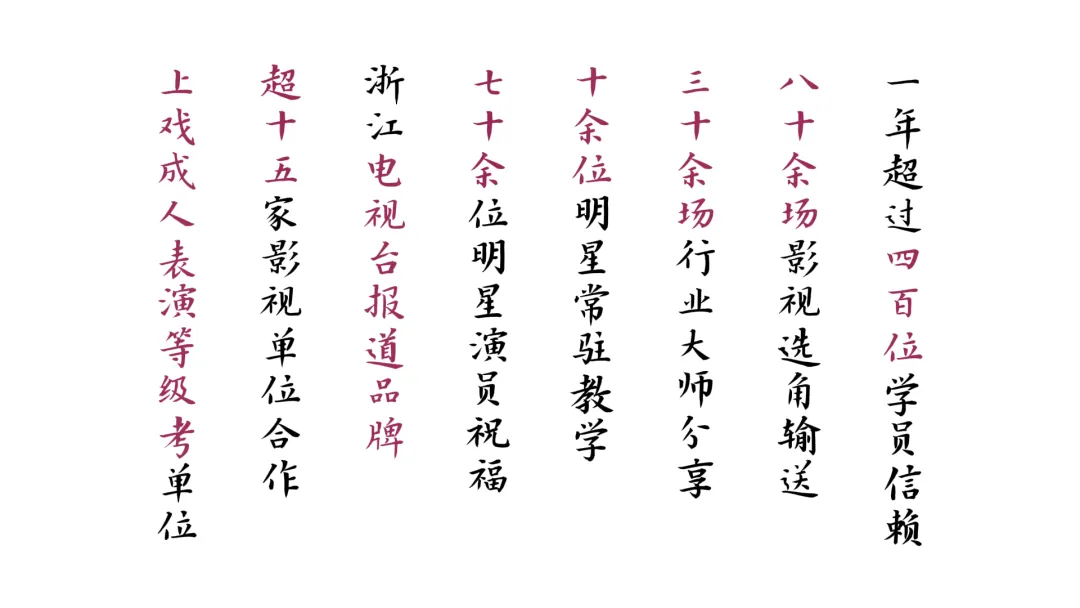 一年超过四百位学员信赖
八十余场影视选角输送
三十余场行业大师分享
十余位明星常驻教学
七十余位明星演员祝福
浙江电视台报道品牌
超十五家影视单位合作
上戏成人表演等级考单位